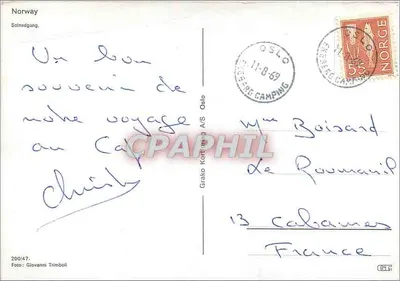 Norway
Solnedgang.
Un bon
souvenir de
notre voyage
au Cap
Christ
200/47.
Foto: Giovanni Trimboli
Grako A/S Oslo
CPAPHIL
OSLO
11-8-69
EKEBERG CAMPING
OSLO
EKEBERG CAMPING
NORGE
55
Mme Boisard
Le Roumanil
13 Cabannes
France